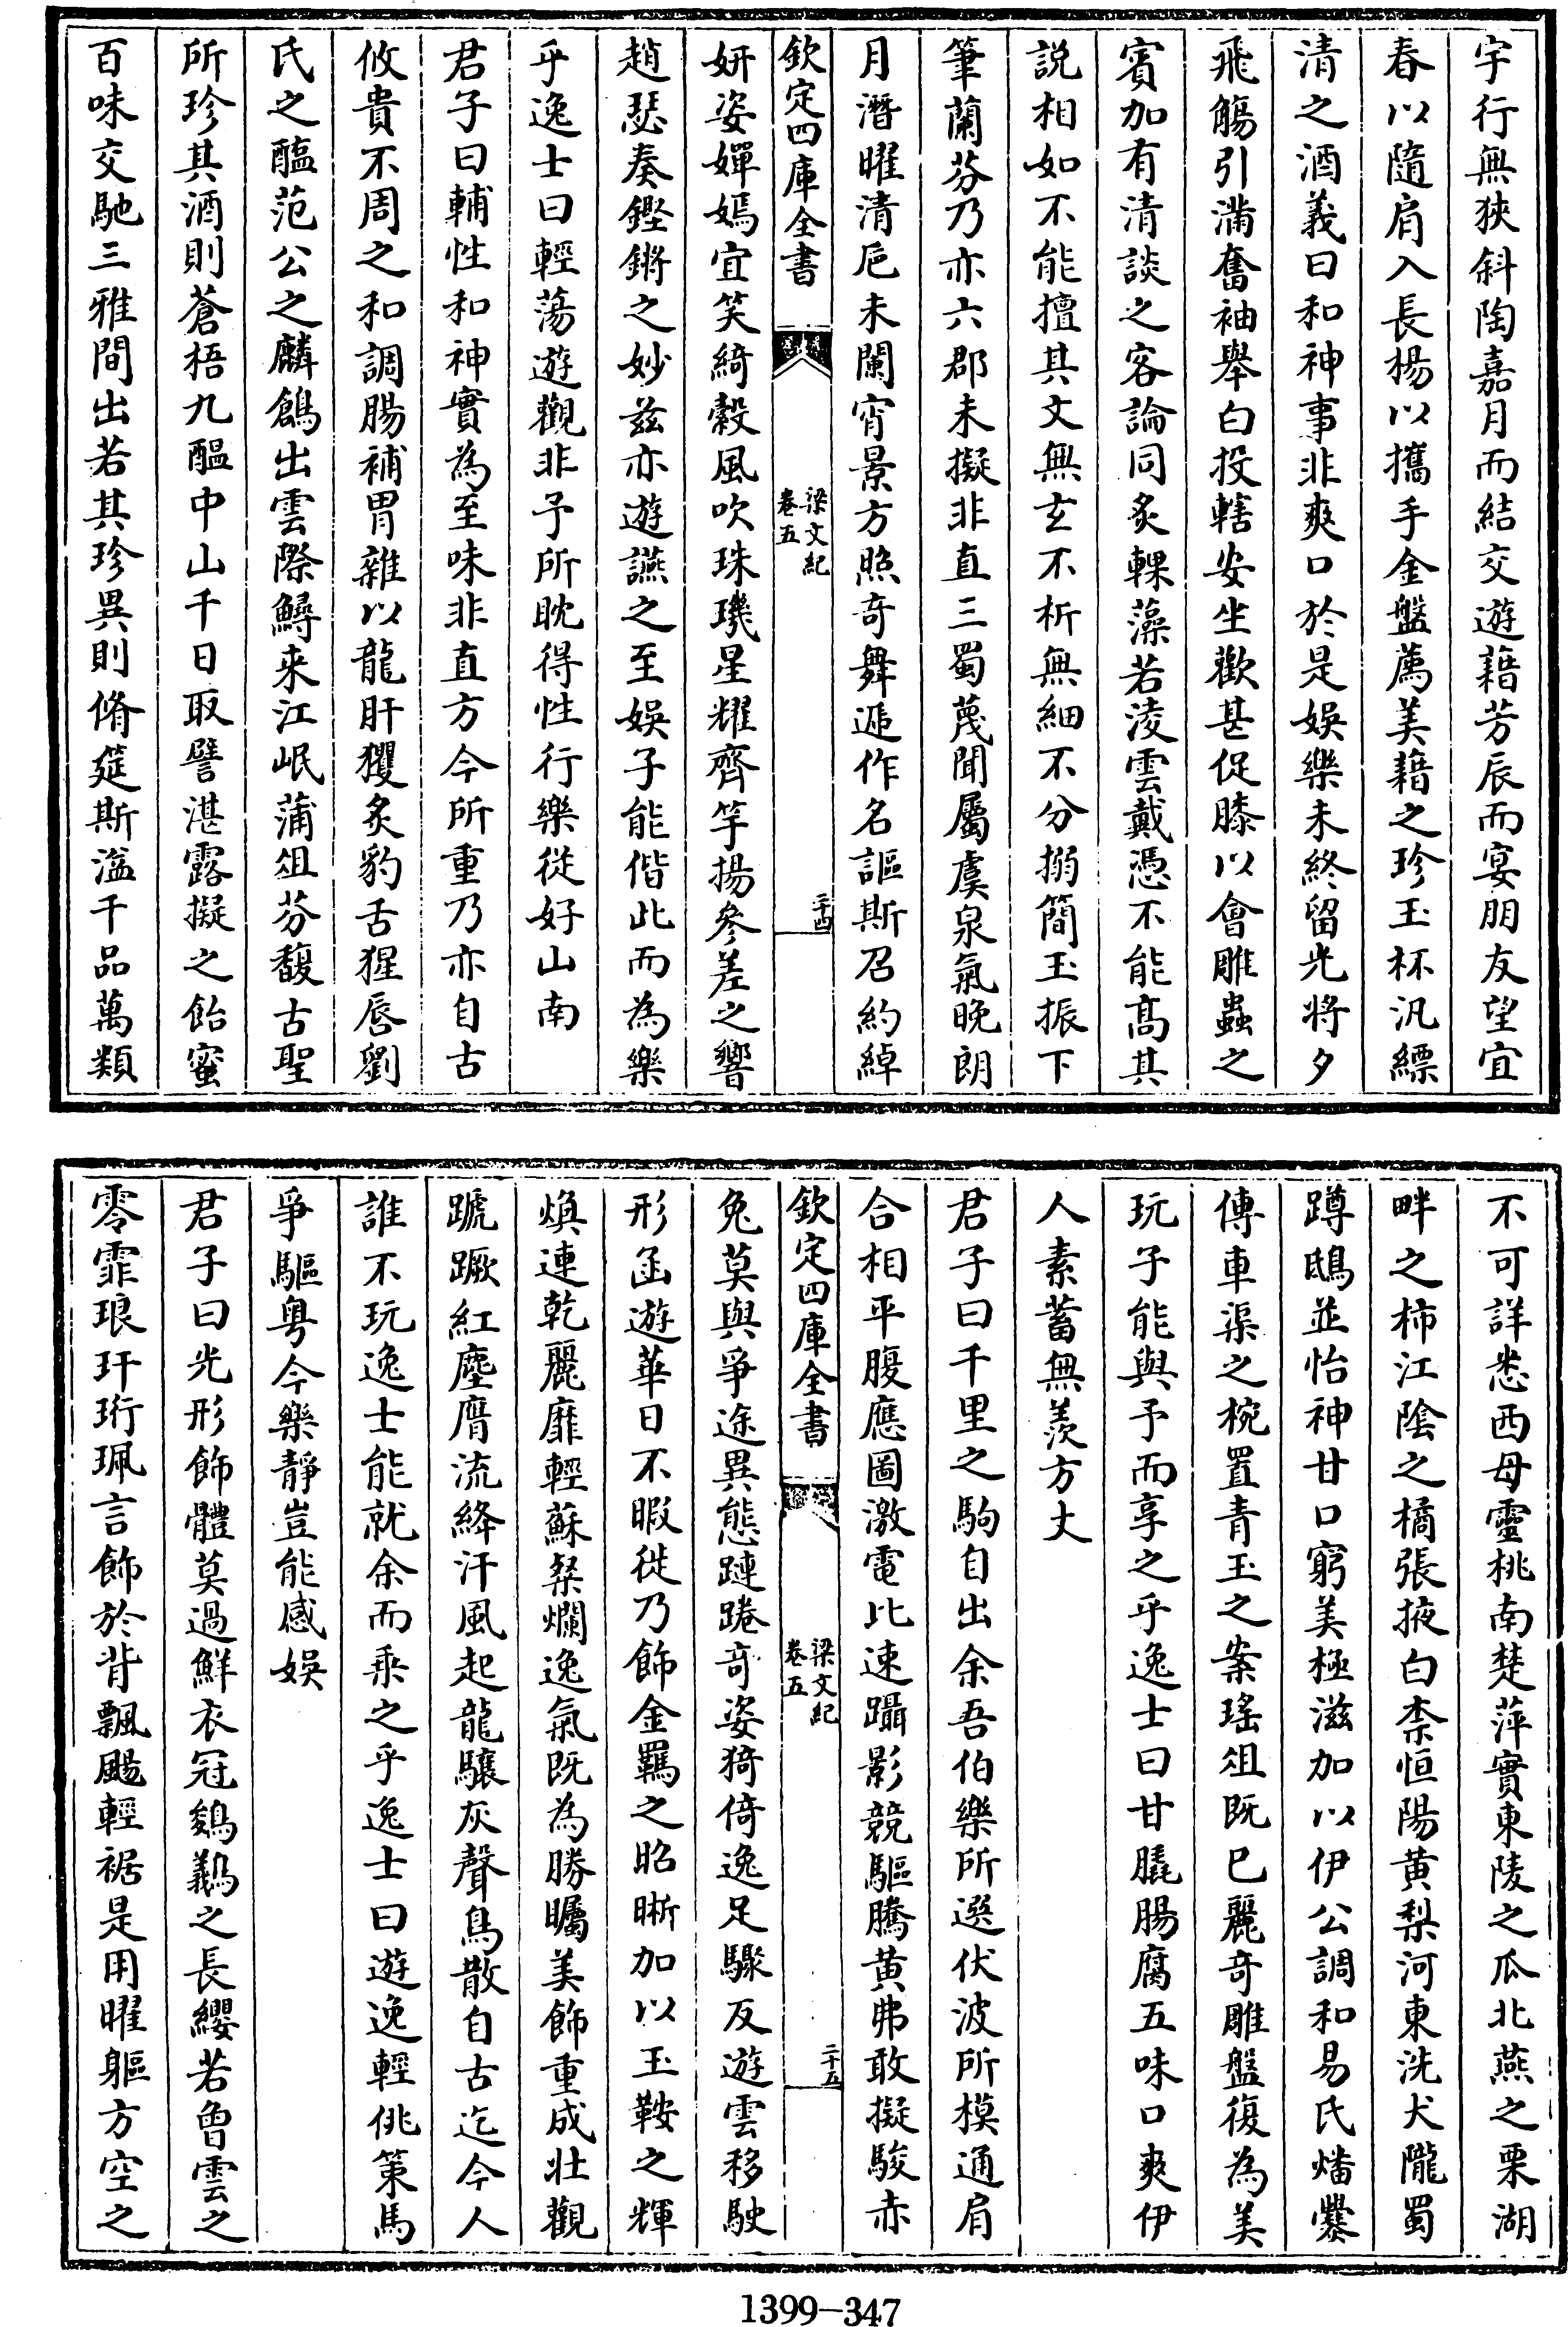 宇行無狹斜陶嘉月而結交遊藉芳辰而宴朋友望宜
春以隨肩入長楊以攜手金盤薦美藉之珍玉杯汎縹
清之酒義曰和神事非爽口於是娛樂未終留光將夕
飛觴引滿奮袖舉白投轄安坐歡甚促膝以會雕蟲之
賓加有清談之客論同炙輠藻若淩雲戴憑不能高其
説相如不能擅其文無玄不析無細不分搦簡玉振下
筆蘭芬乃亦六郡未擬非直三蜀蔑聞屬虞泉氣晚朗
月潛曜清巵未闌宵景方照奇舞遞作名謳斯召約綽
欽定四庫全書
梁文紀
卷五
二十四
妍姿嬋嫣宜笑綺縠風吹珠璣星耀齊竽揚參差之響
趙瑟奏鏗鏘之妙兹亦遊讌之至娛子能偕此而為樂
乎逸士曰輕蕩遊觀非予所耽得性行樂從好山南
君子曰輔性和神實為至味非直方今所重乃亦自古
攸貴不周之和調腸補胃雜以龍肝玃炙豹舌猩脣劉
氏之醢范公之麟鷁出雲際鱘来江岷蒲俎芬馥古聖
所珍其酒則蒼梧九醖中山千日取譬湛露擬之飴蜜
百味交馳三雅間出若其珍異則脩筵斯溢千品萬類
不可詳悉西母靈桃南楚萍實東陵之瓜北燕之栗湖
畔之柿江陰之橘張掖白柰恒陽黄梨河東洗犬隴蜀
蹲鴟並怡神甘口窮美極滋加以伊公調和易氏燔爨
傳車渠之椀置青玉之案瑤俎既已麗奇雕盤復為美
玩子能與予而享之乎逸士曰甘膬腸腐五味口爽伊
人素蓄無羨方丈
君子曰千里之駒自出余吾伯樂所選伏波所模通肩
合相平腹應圖激電比速躡影競驅騰黄弗敢擬駿赤
欽定四庫全書
梁文紀
卷五
二十五
兔莫與爭途異態蹥踡奇姿猗倚逸足驟反遊雲移駛
形函遊華日不暇徙乃飾金羈之昭晣加以玉鞍之輝
煥連乾麗靡輕蘇粲爛逸氣既為勝矚美飾重成壯觀
蹏蹶紅塵膺流絳汗風起龍驤灰聲鳥散自古迄今人
誰不玩逸士能就余而乘之乎逸士曰遊逸輕佻策馬
爭驅粤今樂靜豈能感娛
君子曰光形飾體莫過鮮衣冠鵕鸃之長纓若曾雲之
零霏琅玕珩珮言飾於背飄颺輕裾是用曜軀方空之
1399-347